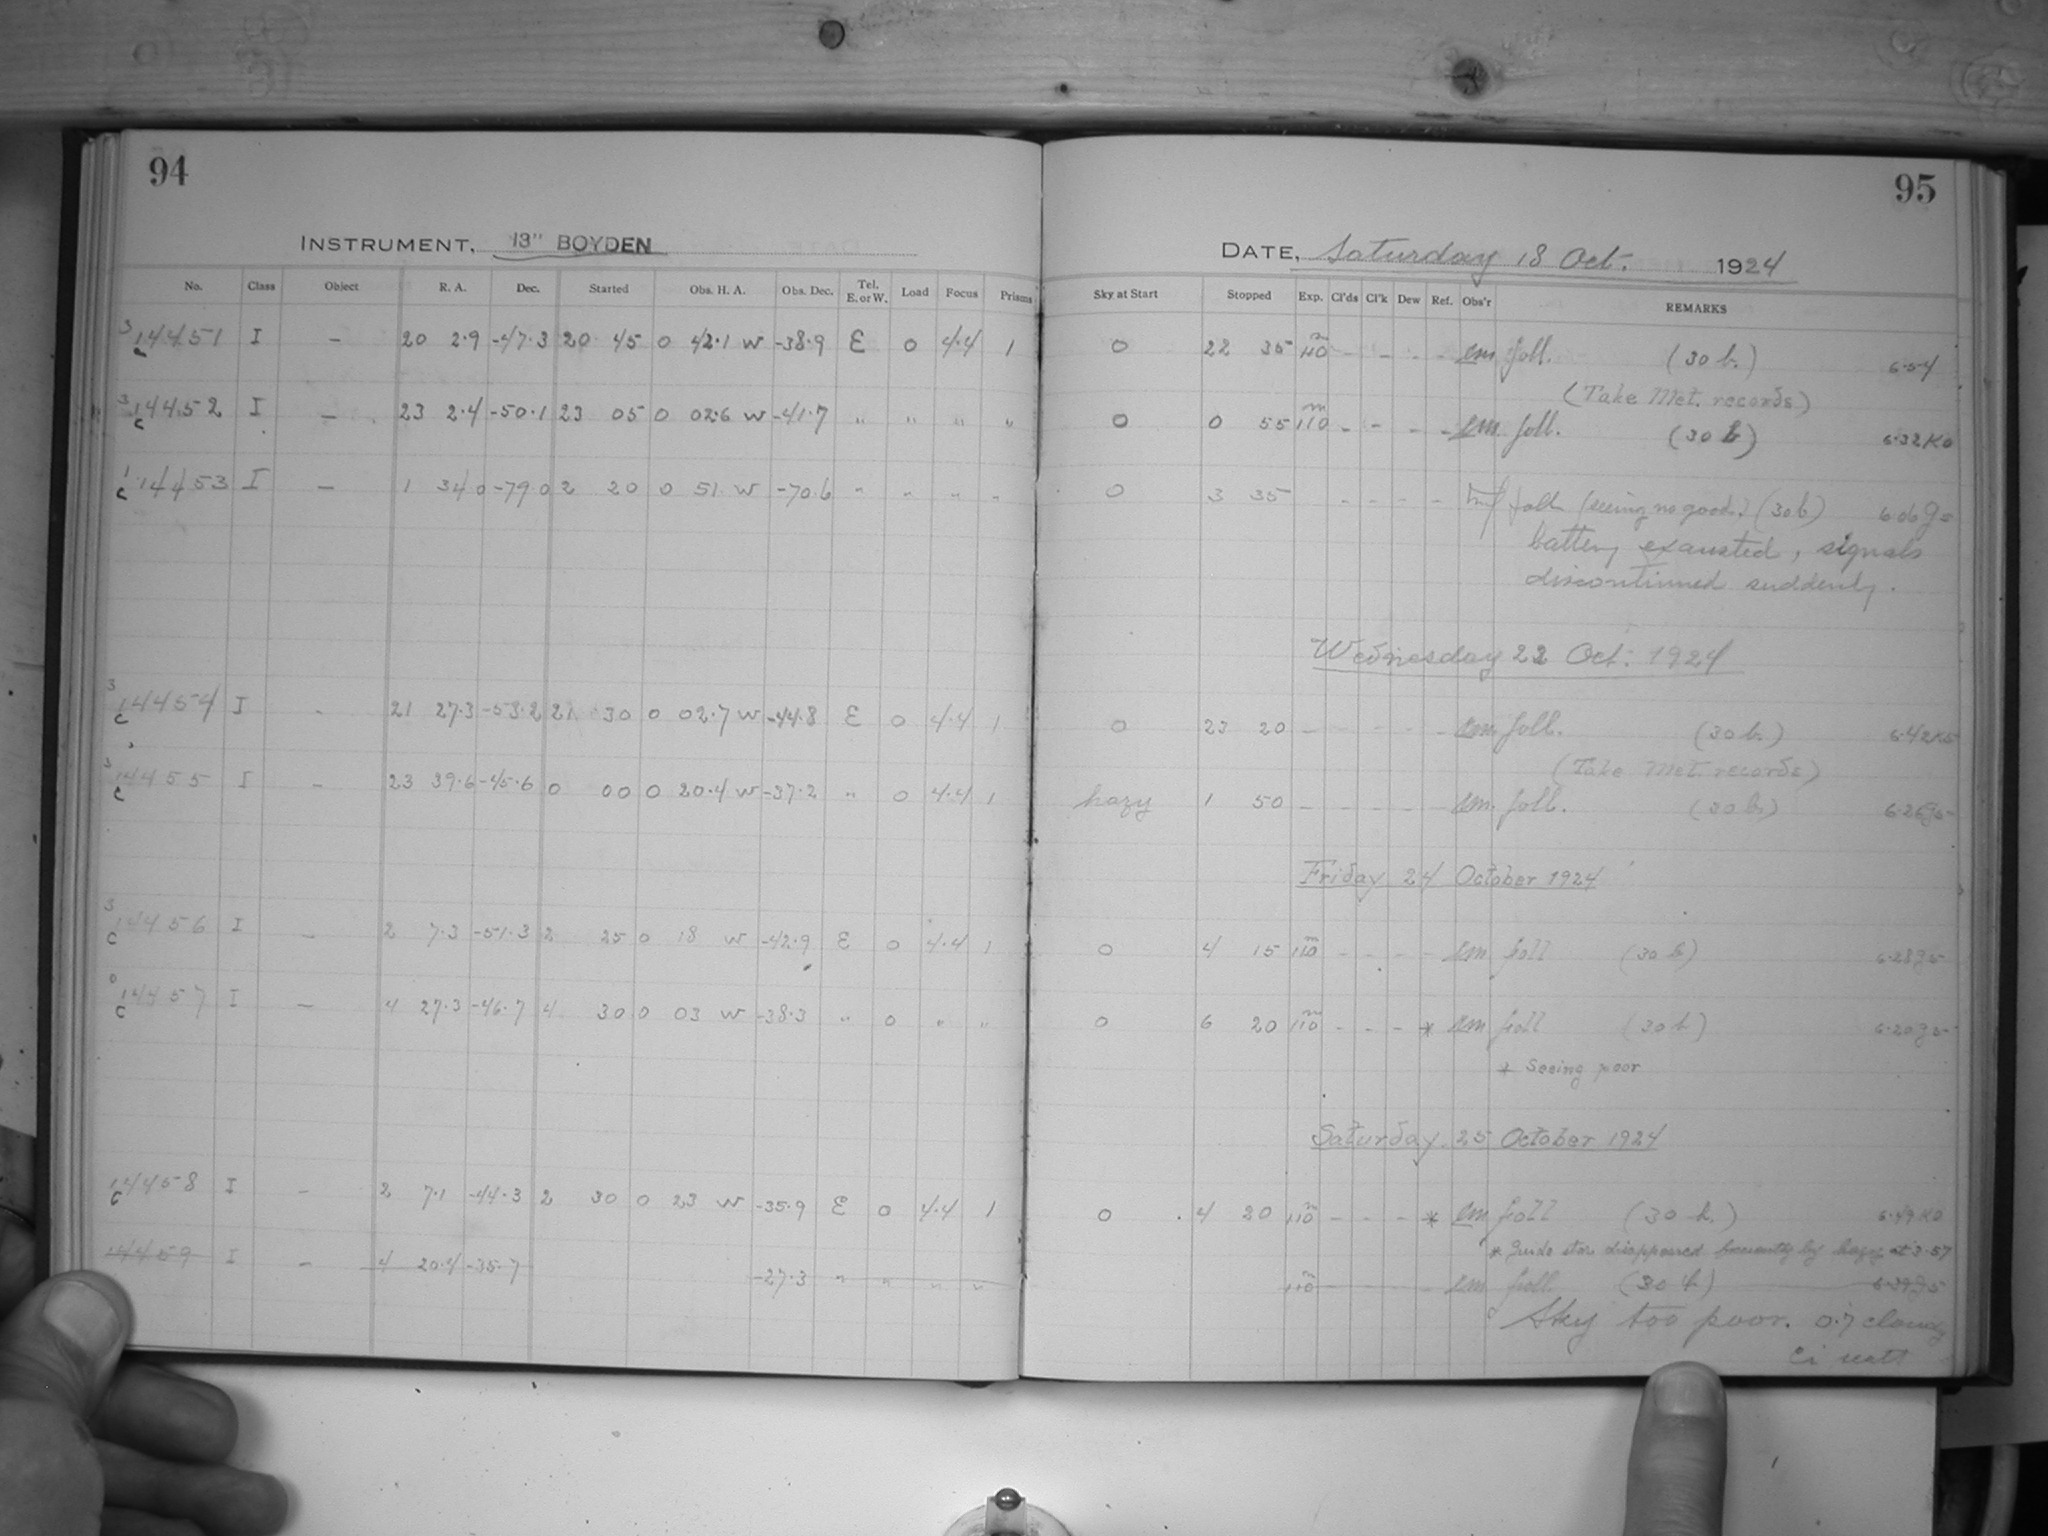 94
INSTRUMENT, 13" BOYDEN
No. Class Object R. A. Dec. Started Obs. H. A. Obs. Dec. Tel. E. or W. Load Focus Prisms
3 c 14451 I — 20 2.9 -47.3 20 45 0 42.1 W -38.9 E 0 4.4 1
3 c 14452 I — 23 2.4 -50.1 23 05 0 02.6 W -41.7 " " " "
1 c 14453 I — 1 34.0 -79.0 2 20 0 51 W -70.6 " " " "
3 c 14454 I - 21 27.3 -53.2 21 30 0 02.7 W -44.8 E 0 4.4 1
3 c 14455 I - 23 39.6 -45.6 0 00 0 20.4 W -37.2 " 0 4.4 1
3 c 14456 I — 2 7.3 -51.3 2 25 0 18 W -42.9 E 0 4.4 1
0 c 14457 I — 4 27.3 -46.7 4 30 0 03 W -38.3 " 0 " "
c 14458 I - 2 7.1 -44.3 2 30 0 23 W -35.9 E 0 4.4 1
14459 I - 4 20.4 -35.7 -27.3 " " " "
95
DATE, Saturday 18 Oct. 1924
Sky at Start Stopped Exp. Cl'ds Cl'k Dew Ref. Obs'r REMARKS
0 22 35 110m - - - - em foll. (30 b.) 6.54
(Take Met. records)
0 0 55 110m - - - - em foll. (30 b) 6.32 K0
0 3 35 - - - - foll. (seeing no good.) (30 b) 6.06 g5
battery exausted, signals
discontinued suddenly.
Wednesday 22 Oct. 1924
0 23 20 - - - - - em foll. (30 b.) 6.42 K5
(Take Met. records)
hazy 1 50 - - - - - em foll. (30 b.) 6.26 g5
Friday 24 October 1924
0 4 15 110m - - - - em foll (30 b) 6.28 g5
0 6 20 110m - - - * em foll (30 b) 6.20 g5
* Seeing poor
Saturday 25 October 1924
0 4 20 110m - - - * em foll (30 b.) 6.49 K0
* Guide star disappeared by hazy at 3.57
110m em foll. (30 b) 6.39 g5
Sky too poor. 0.7 cloudy